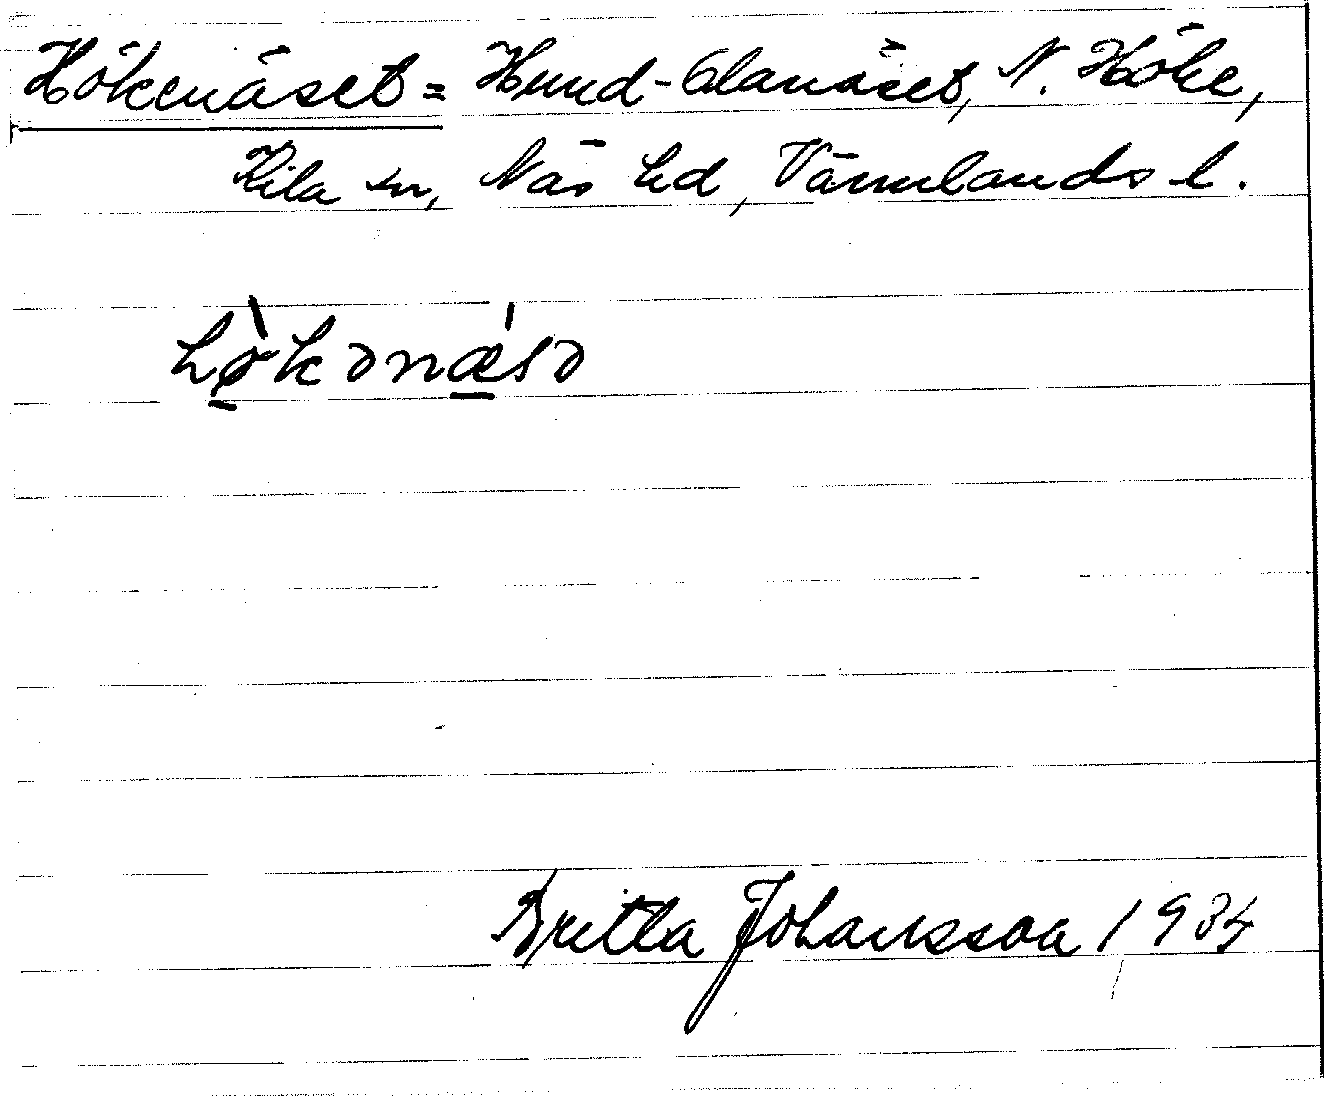 Hökenäset = Hund-Olanäset, N. Höke,
Kila sn, Näs hd, Värmlands l.
hø̀kənǽsə
Britta Johansson 1934